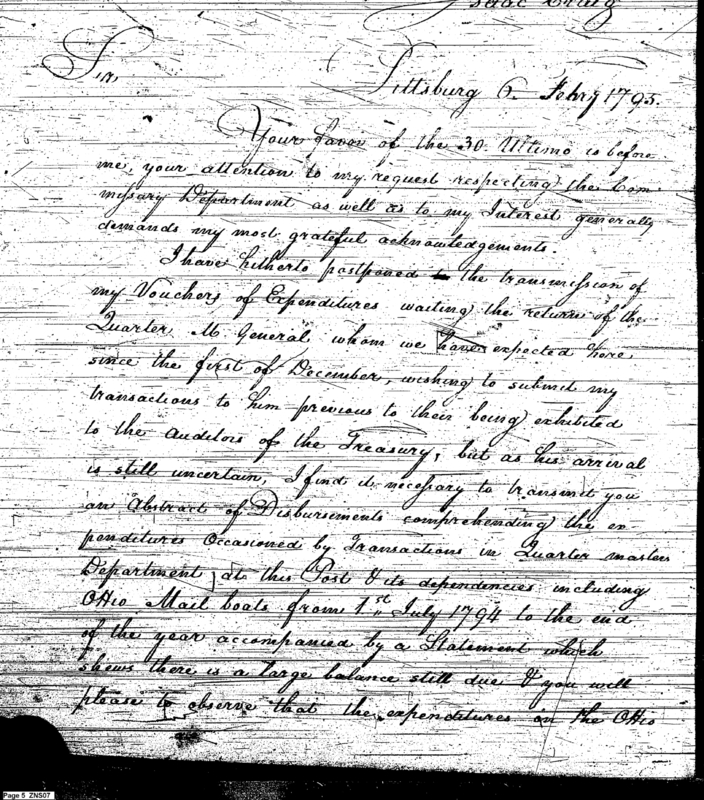 Isaac Craig
Sir,
Pittsburg 6 Febry 1795.
Your favor of the 30. Ultimo is before
me, your attention to my request respecting the Com
missary Department as well as to my Interest generally
demands my most grateful acknowledgements.
I have hitherto postponed the transmission of
my Vouchers of Expenditures waiting the return of the
Quarter M. General whom we have expected here
since the first of December, wishing to submit my
transactions to him previous to their being exhibited
to the Auditors of the Treasury, but as his arrival
is still uncertain, I find it necessary to transmit you
an Abstract of Disbursements comprehending the ex-
penditures Occasioned by Transactions in Quarter masters
Department at this Post & its dependencies including
Ohio Mail boats from 1st July 1794 to the end
of the year accompanied by a Statement which
shews there is a large balance still due & you will
please to observe that the expenditures on the Ohio
Page 5 ZNS07